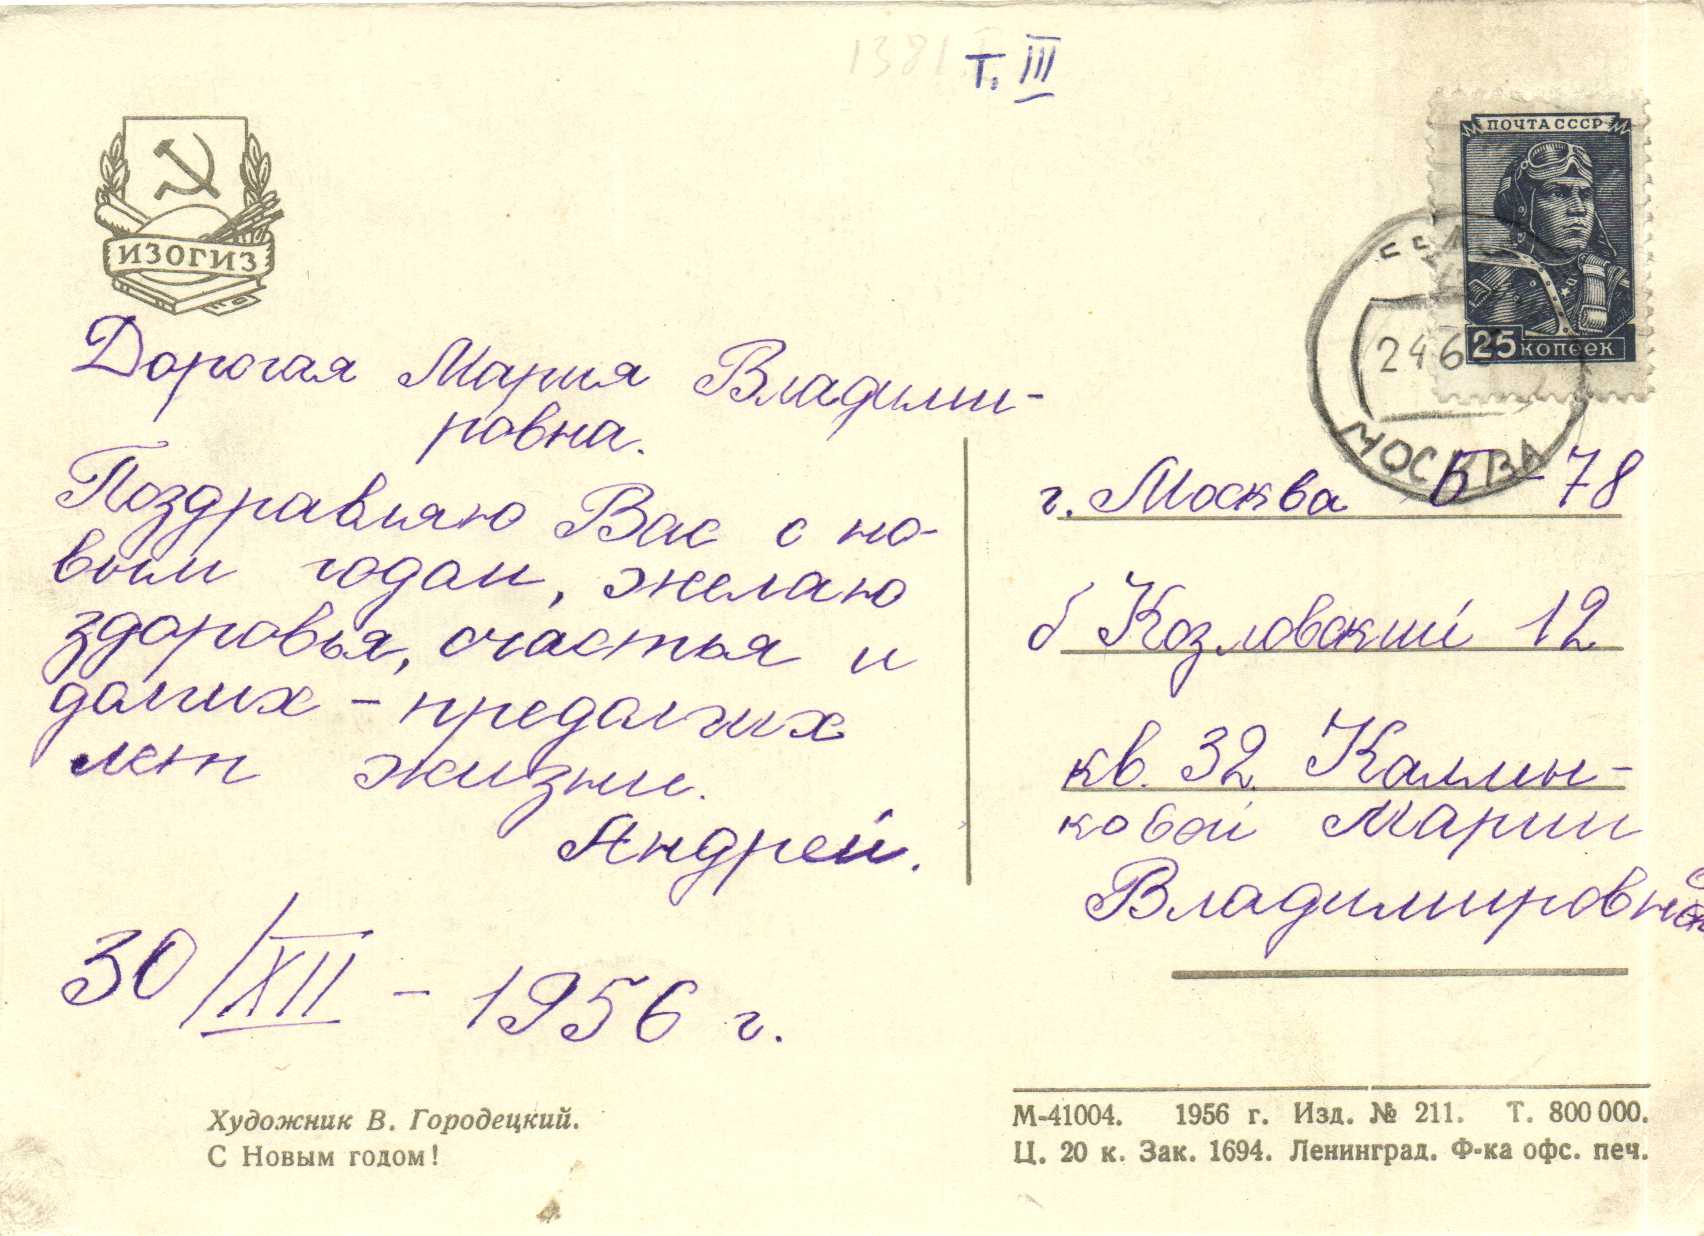 1381
т. III
ИЗОГИЗ
ПОЧТА СССР
25 копеек
2 4 6
МОСКВА
Дорогая Мария Владими-
ровна.
Поздравляю Вас с но-
вым годом, желаю
здоровья, счастья и
долгих - предолгих
лет жизни.
Андрей.
30/XII - 1956 г.
г. Москва Б-78
б Козловский 12
кв. 32. Калмы-
ковой Марии
Владимировне
Художник В. Городецкий.
С Новым годом!
М-41004. 1956 г. Изд. № 211. Т. 800 000.
Ц. 20 к. Зак. 1694. Ленинград. Ф-ка офс. печ.